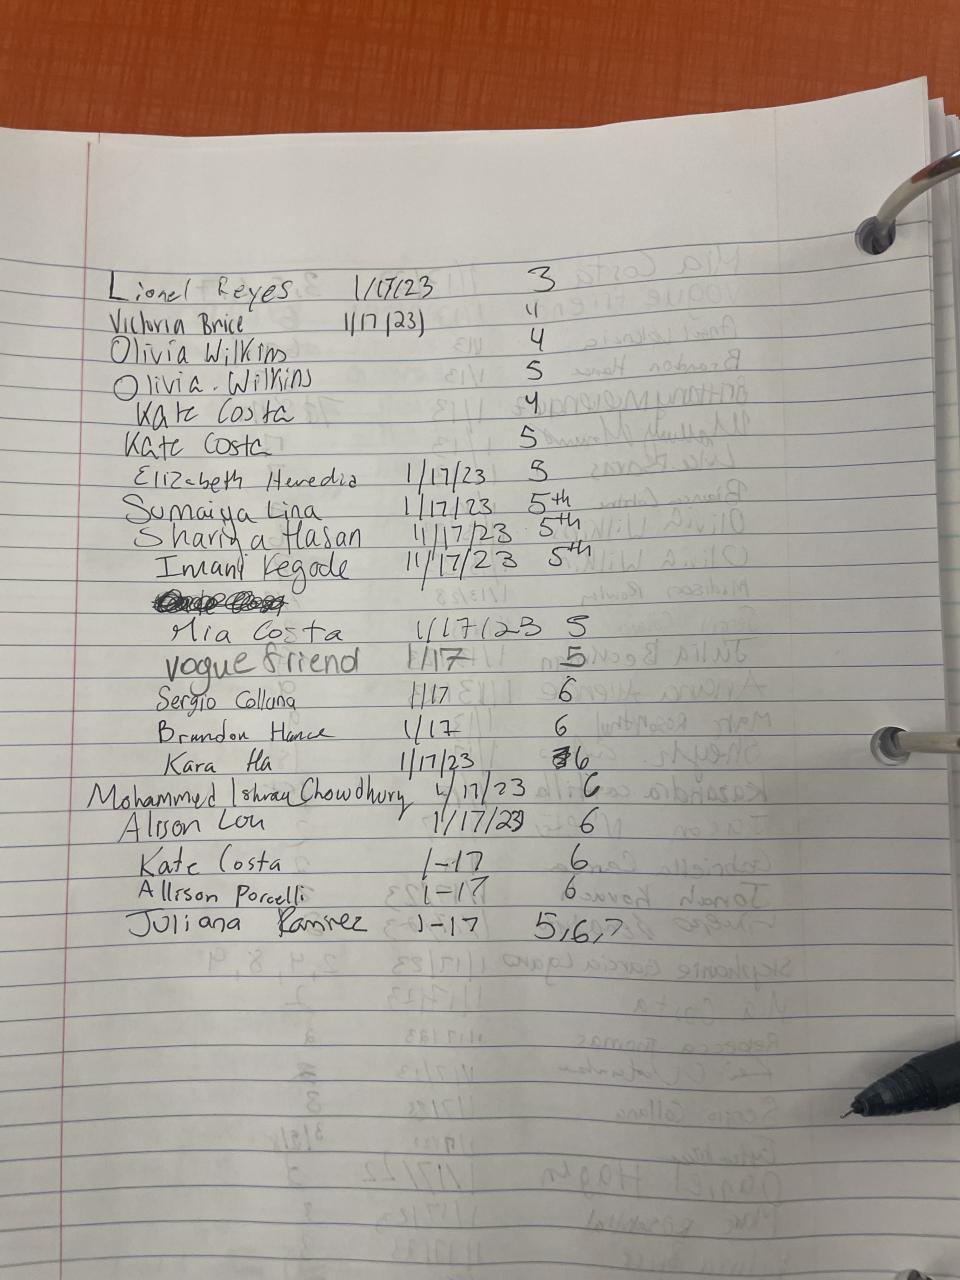 Lionel Reyes 1/17/23 3
Victoria Brice 1/17/23) 4
Olivia Wilkins 4
Olivia. Wilkins 5
Kate Costa 4
Kate Costa 5
Elizabeth Heredia 1/17/23 5
Sumaiya Lina 1/17/23 5th
Shariya Hasan 11/17/23 5th
Imani Kegode 11/17/23 5th
Mia Costa 1/17/23 5
vogue friend 1/17 5
Sergio Collana 1/17 6
Brandon Hance 1/17 6
Kara Ha 1/17/23 6
Mohammed Ishraq Chowdhury 1/17/23 6
Alison Lou 1/17/23 6
Kate Costa 1-17 6
Allison Porcelli 1-17 6
Juliana Ramirez 1-17 5,6,7